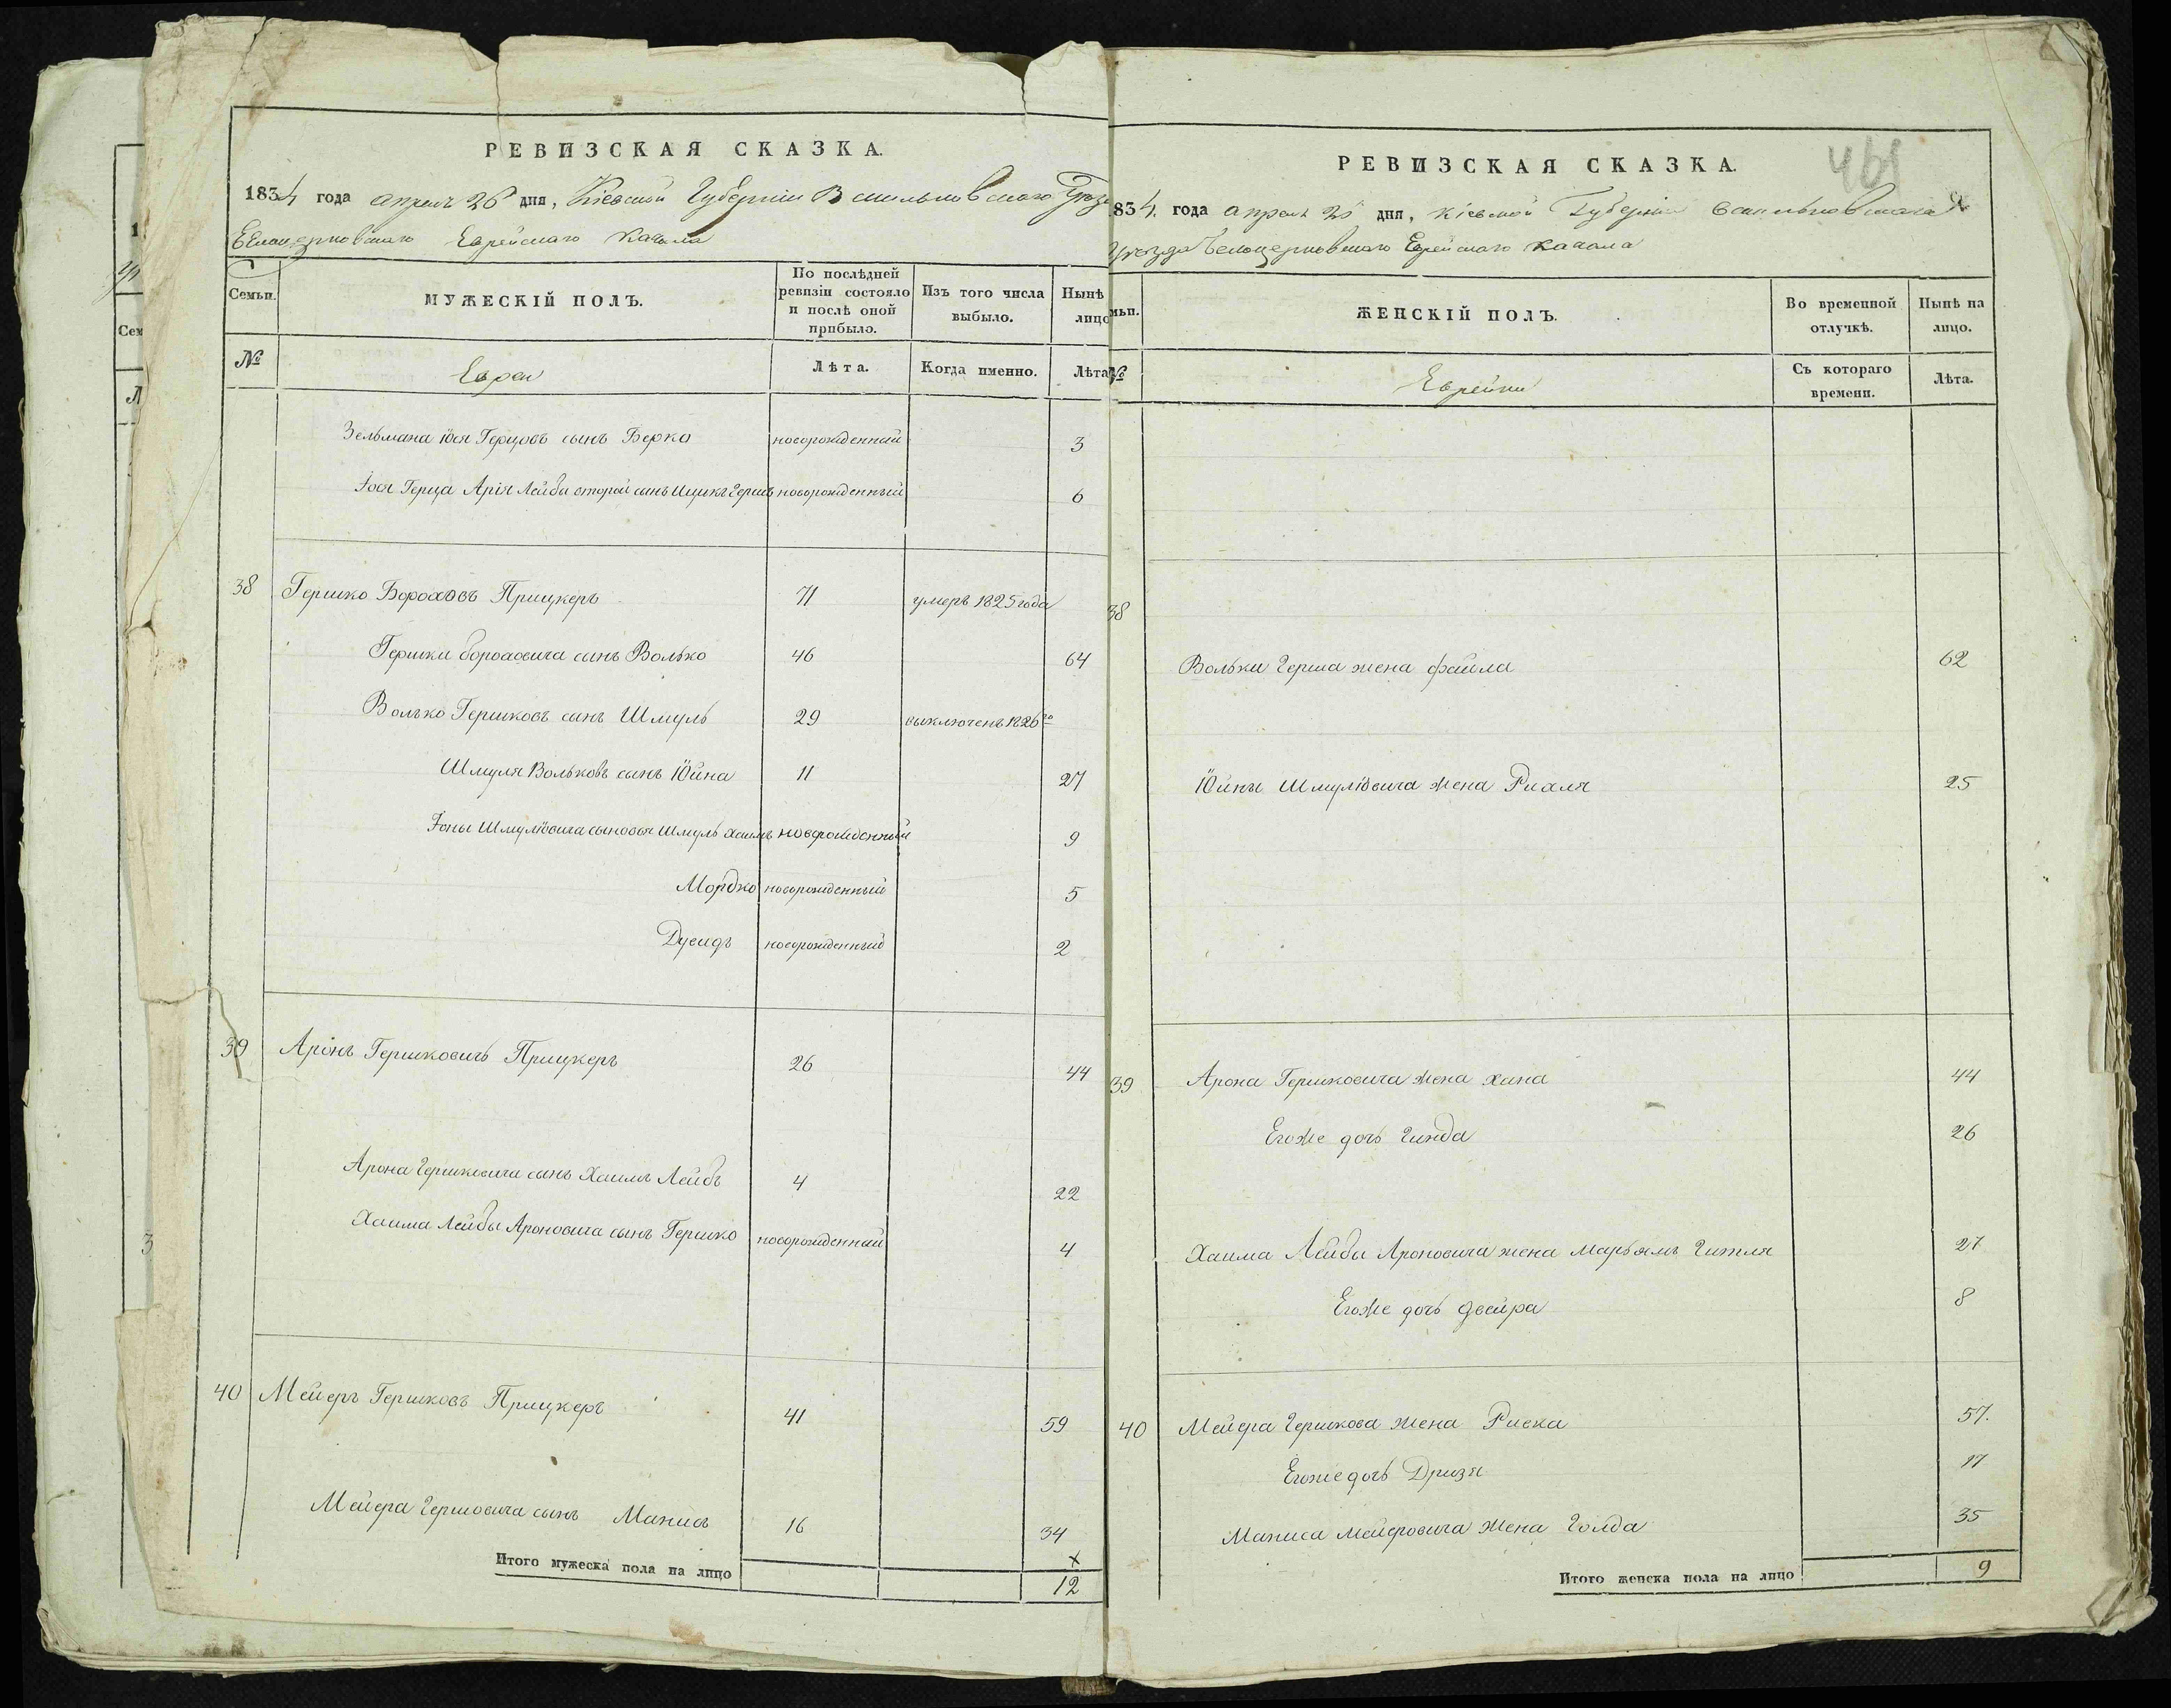 РЕВИЗСКАЯ СКАЗКА.
1834 года апреля 26 дня, Кіевской Губерніи Васильковского Уезда
Белоцерковскаго Еврейскаго Кагала
Семьи.
МУЖЕСКІЙ ПОЛЪ.
По послѣдней ревизіи состояло и послѣ оной прибыло.
Изъ того числа выбыло.
Нынѣ лицо
№
Евреи
Лѣта.
Когда именно.
Лѣта
Зельмана Іося Герцовъ сынъ Берко новорожденный 3
Іося Герца Арія Лейбы второй сынъ Ицикъ Гершъ новорожденный 6
38 Гершко Бороховъ Прицкеръ 71 умеръ 1825 года
Гершки Бороховича сынъ Волько 46 64
Волько Гершковъ сынъ Шмуль 29 выключенъ 1826 го
Шмуля Вольковъ сынъ Іойна 11 27
Іоны Шмуліовича сыновья Шмуль Хаимъ новорожденный 9
Мордко новорожденный 5
Дувидъ новорожденный 2
39 Аронъ Гершковичъ Прицкеръ 26 44
Арона Гершковича сынъ Хаимъ Лейбъ 4 22
Хаима Лейбы Ароновича сынъ Гершко новорожденный 4
40 Мейеръ Гершковъ Прицкеръ 41 59
Мейера Гершовича сынъ Манисъ 16 34
х
Итого мужеска пола на лицо 12
461
РЕВИЗСКАЯ СКАЗКА.
834. года апреля 26 дня, Кіевской Губерніи Васильковскаго
Уезда Белоцерковскаго Еврейскаго Кагала
мьи.
ЖЕНСКІЙ ПОЛЪ.
Во временной отлучкѣ.
Нынѣ на лицо.
№
Еврейки
Съ котораго времени.
Лѣта.
38
Вольки Герша жена Файла 62
Іойны Шмуліовича жена Рихля 25
39 Арона Гершковича жена Хана 44
Егоже дочь Гинда 26
Хаима Лейбы Ароновича жена Марьямъ Гитля 27
Егоже дочь Двейра 8
40 Мейера Гершкова жена Ривка 57.
Егоже дочь Дризя 17
Маниса Мейеровича жена Голда 35
Итого женска пола на лицо 9